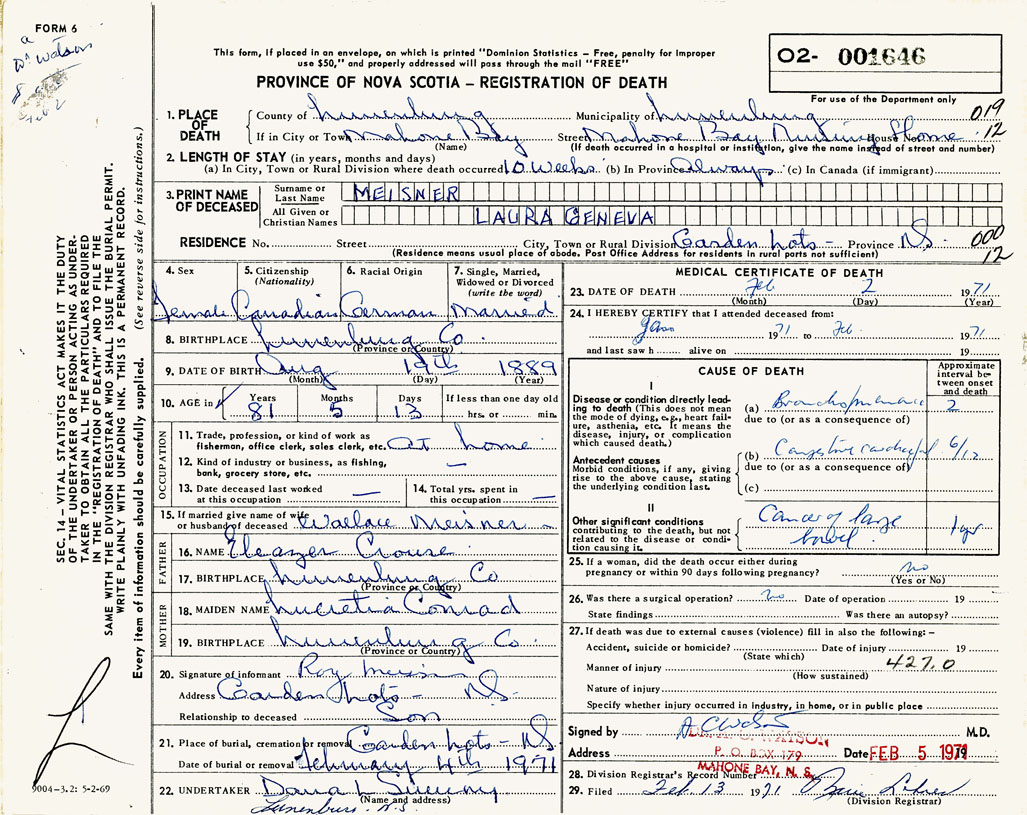 FORM 6
a
Dr Watson
Feb 2
This form, if placed in an envelope, on which is printed "Dominion Statistics — Free, penalty for improper
use $50," and properly addressed will pass through the mail "FREE"
PROVINCE OF NOVA SCOTIA — REGISTRATION OF DEATH
02- 001646
For use of the Department only
SEC. 14 - VITAL STATISTICS ACT MAKES IT THE DUTY
OF THE UNDERTAKER OR PERSON ACTING AS UNDER-
TAKER TO OBTAIN ALL THE PARTICULARS REQUIRED
IN THE "REGISTRATION OF DEATH" AND TO FILE THE
SAME WITH THE DIVISION REGISTRAR WHO SHALL ISSUE THE BURIAL PERMIT.
WRITE PLAINLY WITH UNFADING INK. THIS IS A PERMANENT RECORD.
Every item of information should be carefully supplied. (See reverse side for instructions.)
1. PLACE OF DEATH
County of Lunenburg Municipality of Lunenburg 019
If in City or Town Mahone Bay Street Mahone Bay Nursing Home House No. 12
(Name) (If death occurred in a hospital or institution, give the name instead of street and number)
2. LENGTH OF STAY (in years, months and days)
(a) In City, Town or Rural Division where death occurred 10 weeks (b) In Province Always (c) In Canada (if immigrant)
3. PRINT NAME OF DECEASED
Surname or Last Name MEISNER
All Given or Christian Names LAURA GENEVA
RESIDENCE No. Street City, Town or Rural Division Garden Lots — Province N.S. 000
12
(Residence means usual place of abode. Post Office Address for residents in rural parts not sufficient)
4. Sex Female
5. Citizenship (Nationality) Canadian
6. Racial Origin German
7. Single, Married, Widowed or Divorced (write the word) Married
8. BIRTHPLACE Lunenburg Co.
(Province or Country)
9. DATE OF BIRTH Aug 19th 1889
(Month) (Day) (Year)
10. AGE in Years 81 Months 5 Days 13 If less than one day old
hrs. or min.
OCCUPATION
11. Trade, profession, or kind of work as
fisherman, office clerk, sales clerk, etc. at home
12. Kind of industry or business, as fishing,
bank, grocery store, etc. —
13. Date deceased last worked
at this occupation —
14. Total yrs. spent in
this occupation —
15. If married give name of wife
or husband of deceased Wallace Meisner
FATHER
16. NAME Eleazer Crouse
17. BIRTHPLACE Lunenburg Co
(Province or Country)
MOTHER
18. MAIDEN NAME Lucretia Conrad
19. BIRTHPLACE Lunenburg Co.
(Province or Country)
20. Signature of informant Roy Meisner
Address Garden Lots — N.S.
Relationship to deceased Son
21. Place of burial, cremation or removal Garden Lots — N.S.
Date of burial or removal February 4th 1971
22. UNDERTAKER Dana L Sweeny
(Name and address)
Lunenburg N.S.
9004-3.2: 5-2-69
MEDICAL CERTIFICATE OF DEATH
23. DATE OF DEATH Feb 2 1971
(Month) (Day) (Year)
24. I HEREBY CERTIFY that I attended deceased from:
Jan 1971 to Feb 1971
and last saw h alive on 19
CAUSE OF DEATH
Approximate interval between onset and death
I
Disease or condition directly leading to death (This does not mean the mode of dying, e.g., heart failure, asthenia, etc. It means the disease, injury, or complication which caused death.)
(a) Bronchopneumonia 2
due to (or as a consequence of)
Antecedent causes
Morbid conditions, if any, giving rise to the above cause, stating the underlying condition last.
(b) Congestive cardiac 6/12
due to (or as a consequence of)
(c)
II
Other significant conditions contributing to the death, but not related to the disease or condition causing it.
Cancer of large
bowel 1 yr
25. If a woman, did the death occur either during
pregnancy or within 90 days following pregnancy? no
(Yes or No)
26. Was there a surgical operation? no Date of operation 19
State findings Was there an autopsy?
27. If death was due to external causes (violence) fill in also the following:—
Accident, suicide or homicide? Date of injury 19
(State which)
Manner of injury 427.0
(How sustained)
Nature of injury
Specify whether injury occurred in industry, in home, or in public place
Signed by A C Watson M.D.
WATSON
Address P. O. BOX 179 Date FEB 5 1971
MAHONE BAY, N. S.
28. Division Registrar's Record Number
29. Filed Feb. 13 1971
(Division Registrar)